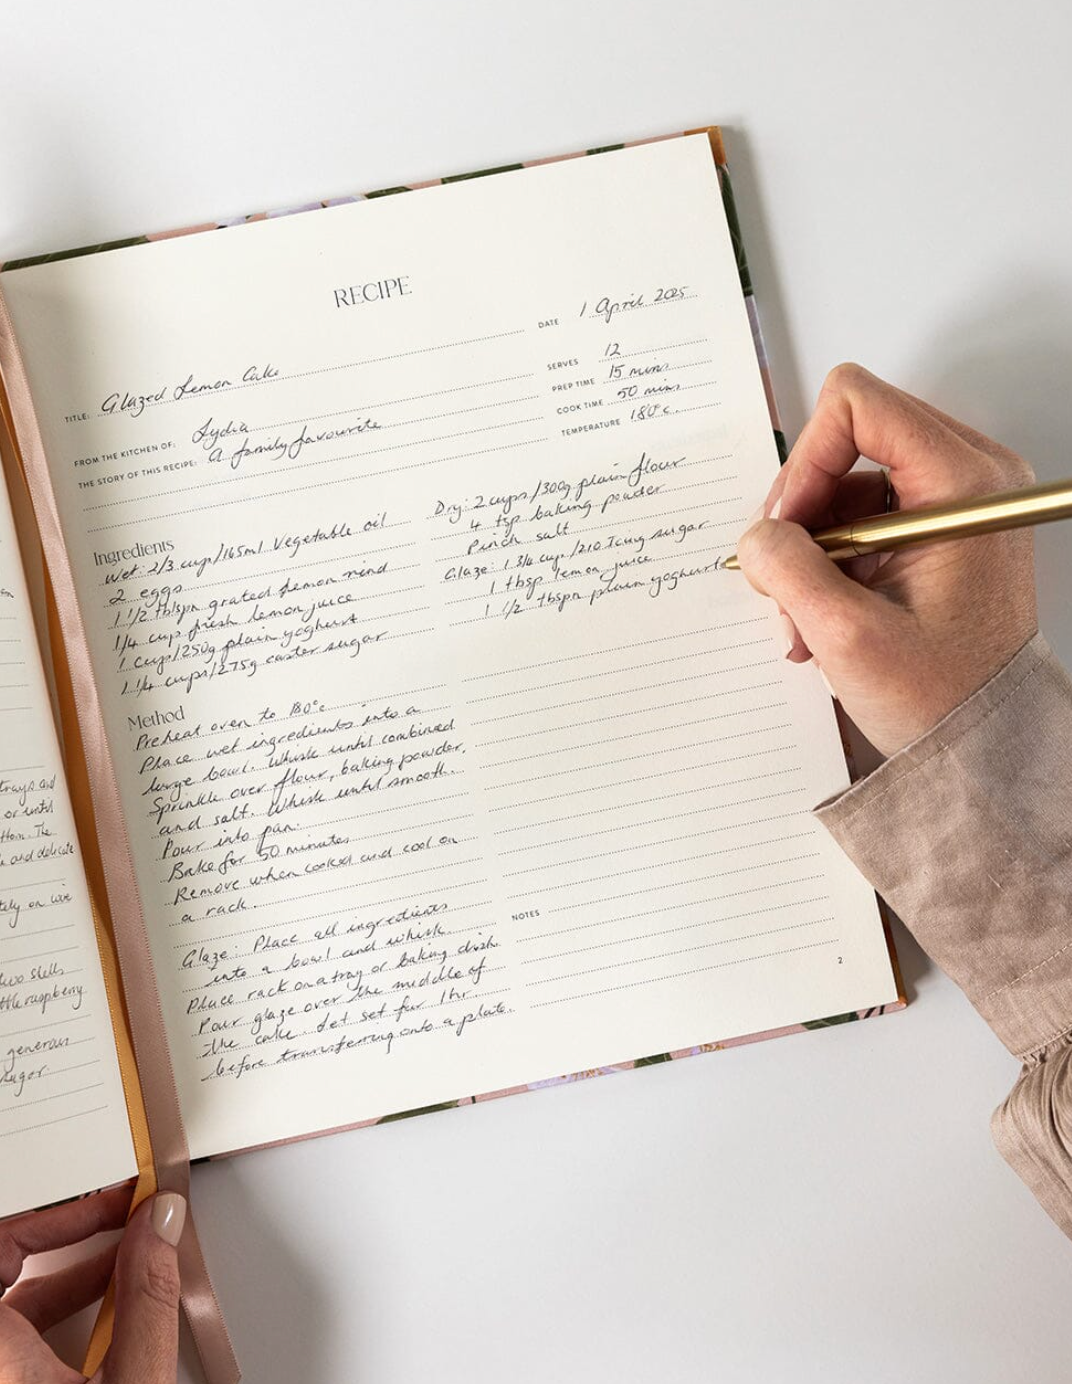 trays and
or until
The
and delicate
on wire
two shells
little raspberry
generous
sugar
RECIPE
DATE 1 April 2025
TITLE: Glazed Lemon Cake
SERVES 12
PREP TIME 15 mins
COOK TIME 50 mins
TEMPERATURE 180°c.
FROM THE KITCHEN OF: Lydia
THE STORY OF THIS RECIPE: A family favourite
Ingredients
Wet: 2/3 cup/165ml Vegetable oil
2 eggs
1 1/2 tblspn grated Lemon rind
1/4 cup fresh lemon juice
1 cup/250g plain yoghurt
1 1/4 cups/275g caster sugar
Dry: 2 cups/300g plain flour
4 tsp baking powder
Pinch salt
Glaze: 1 3/4 cup/210 Icing sugar
1 tbsp lemon juice
1 1/2 tbspn plain yoghurt
Method
Preheat oven to 180°c
Place wet ingredients into a
large bowl. Whisk until combined
Sprinkle over flour, baking powder,
and salt. Whisk until smooth.
Pour into pan.
Bake for 50 minutes
Remove when cooked and cool on
a rack.
Glaze: Place all ingredients
into a bowl and whisk.
Place rack on a tray or baking dish
Pour glaze over the middle of
the cake. Let set for 1hr
before transferring onto a plate.
NOTES
2